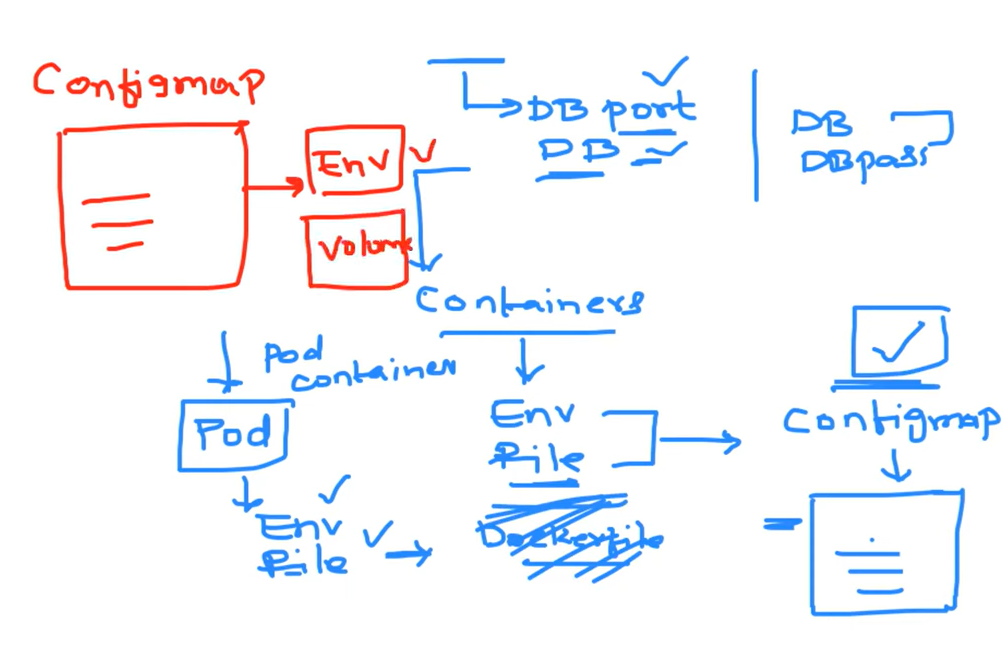 Configmap
Env
Volume
DB port
DB
DB
DBpass
Containers
Pod
container
Pod
Env
File
Env
File
Dockerfile
Configmap